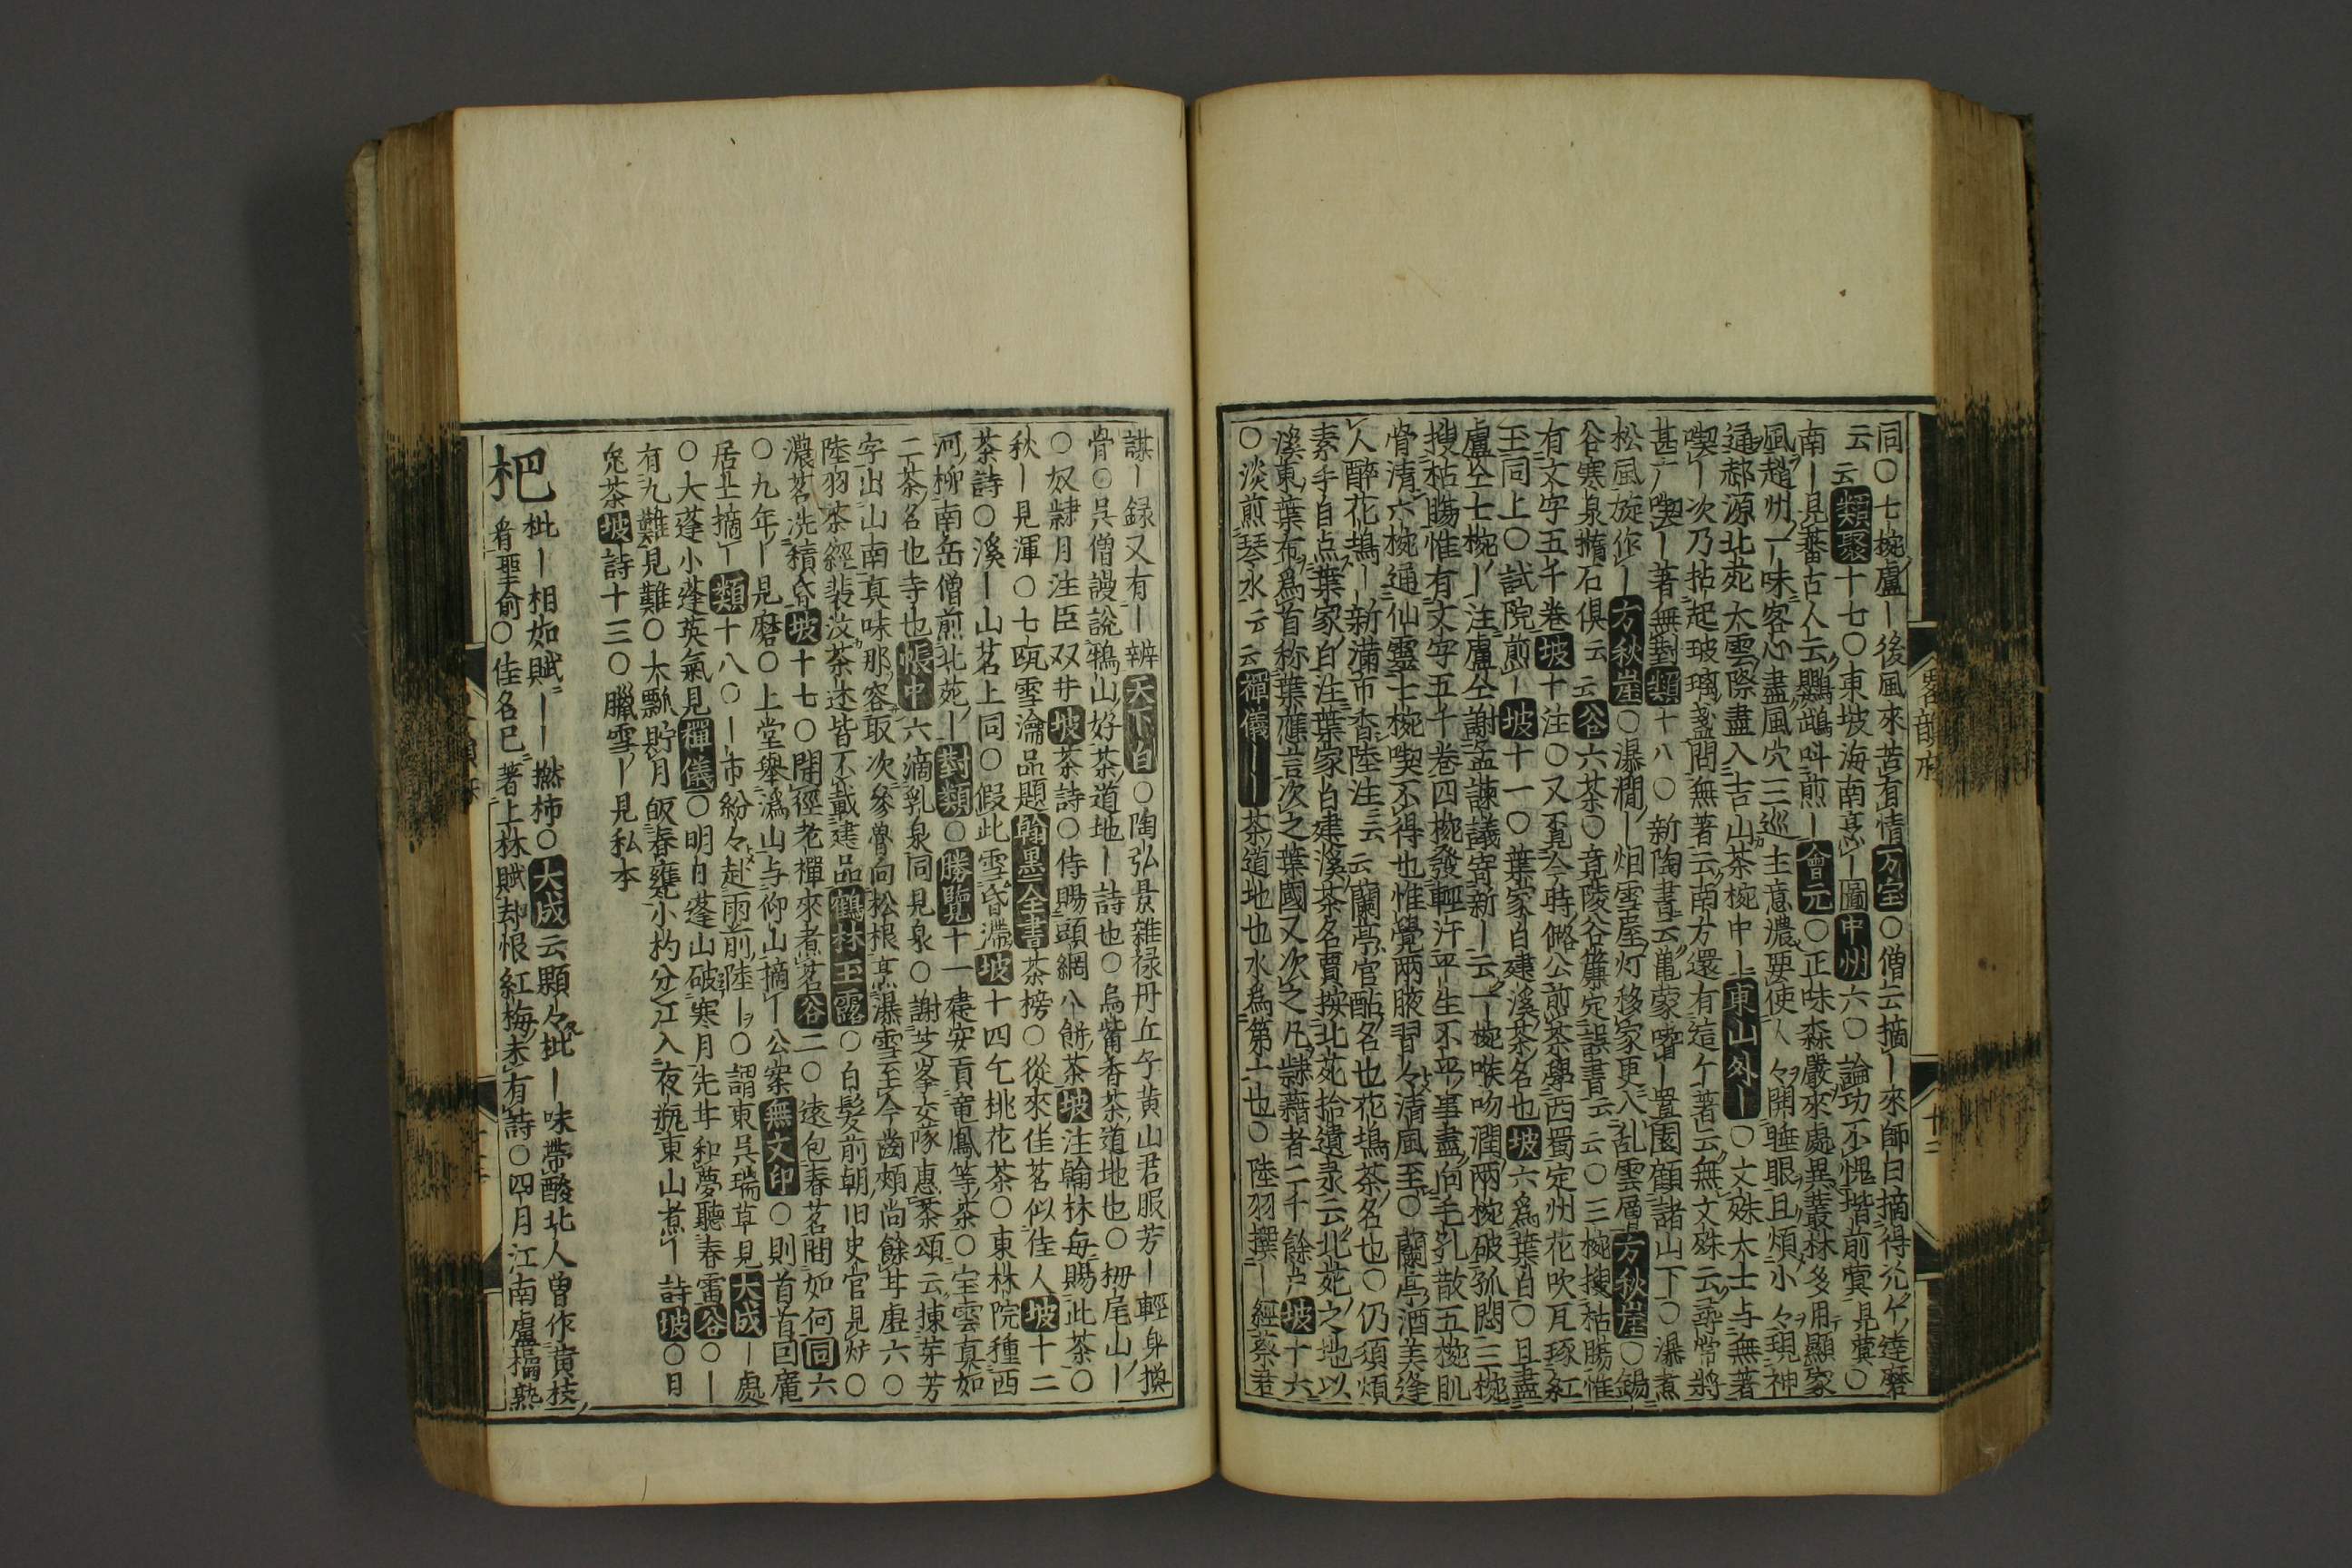 同〇七椀盧ー後風來苦有情万宝〇僧云摘ー來師曰摘得元个達磨
云云類聚十七〇東坡海南烹ー圖中州六〇論功不愧堦前蓂見蓂〇
南ー見蕃古人云鸚鵡呌煎ー會元〇正味森嚴來處異叢林多用顯家
風趙州一味客心盡風穴三巡主意濃要使人々開睡眼且煩小々現神
通郝源北苑太雲際盡入吉山茶椀中ー東山外ー〇文殊大士与無著
喫ー次乃拈起玻璃盞問無著云南方還有這个著云無文殊云尋常將
甚广喫ー著無對類十八〇新陶書云亀蒙嗜ー置園顧諸山下〇瀑煮
松風旋作ー方秋崖〇瀑澗ー烟雪屋灯移家更入乱雲層方秋崖〇錫
谷寒泉橢石俱云云谷六茶〇竟陵谷簾定誤書云云〇三椀搜枯膓惟
有文字五千卷坡十注〇又不見今時優公煎茶學西蜀定州花吹瓦琢紅
玉同上〇試院煎ー坡十一〇葉家白建溪茶名也坡六爲葉白〇且盡
盧仝七椀ー注盧仝謝孟諫議寄新ー云一椀喉吻潤兩椀破孤悶三椀
搜枯膓惟有文字五千卷四椀發輕汗平生不平事盡向毛孔散五椀肌
骨清六椀通仙靈七椀喫不得也惟覺兩腋習々清風至〇蘭亭酒美逢
人醉花塢ー新滿市香陸注云云蘭亭官酤名也花塢茶名也〇仍須煩
素手自点葉家白注葉家白建溪茶名賈按北苑拾遺录云北苑之地以
溪東葉布爲首称葉應言次之葉國又次之凡隷藉者二千餘户坡十六
〇淡煎琴水云云禪儀ーー茶道地也水爲第一也〇陸羽撰ー經蔡君
謨ー録又有ー辨天下白〇陶弘景雜禄丹丘子黄山君服芳ー輕身換
骨〇呉僧謾說鴉山好茶道地ー詩也〇烏觜香茶道地也〇栂尾山ー
〇奴隷月注臣双井坡茶詩〇侍賜頭綱八餅茶坡注翰林毎賜此茶〇
秋ー見渾〇七甌雪瀹品題翰墨全書茶榜〇從來佳茗似佳人坡十二
茶詩〇溪ー山茗上同〇假此雪昏滯坡十四乞桃花茶〇東林院種西
河柳南岳僧煎北苑ー對類〇勝覽十一建安貢竜鳳等茶〇宝雲真如
二茶名也寺也帳中六滴乳泉同見泉〇謝芝峯交隊惠茶頌云揀芽芳
字出山南真味那容取次參曾向松根烹瀑雪至今齒頰尚餘甘盧六〇
陸羽茶經裴汶茶述皆不載建品鶴林玉露〇白髪前朝旧史官見炉〇
濃茗洗積昏坡十七〇開徑老禪來煮茗谷二〇遠包春茗問如何同六
〇九年ー見磨〇上堂舉潙山与仰山摘ー公案無文印〇則首首回魔
居士摘ー類十八〇ー市紛々赴雨前陸ー〇謂東呉瑞草見大成ー處
〇大蓬小蓬英氣見禪儀〇明月蓬山破寒月先甘和夢聽春雷谷〇ー
有九難見難〇大瓢貯月皈春甕小杓分江入夜瓶東山煮ー詩坡〇日
兔茶坡詩十三〇臘雪ー見私本
杷 枇ー相如賦ーー橪柿〇大成云顆々枇ー味帶酸北人曽作黄枝
看聖俞〇佳名已著上林賦却恨紅梅未有詩〇四月江南盧橘熟